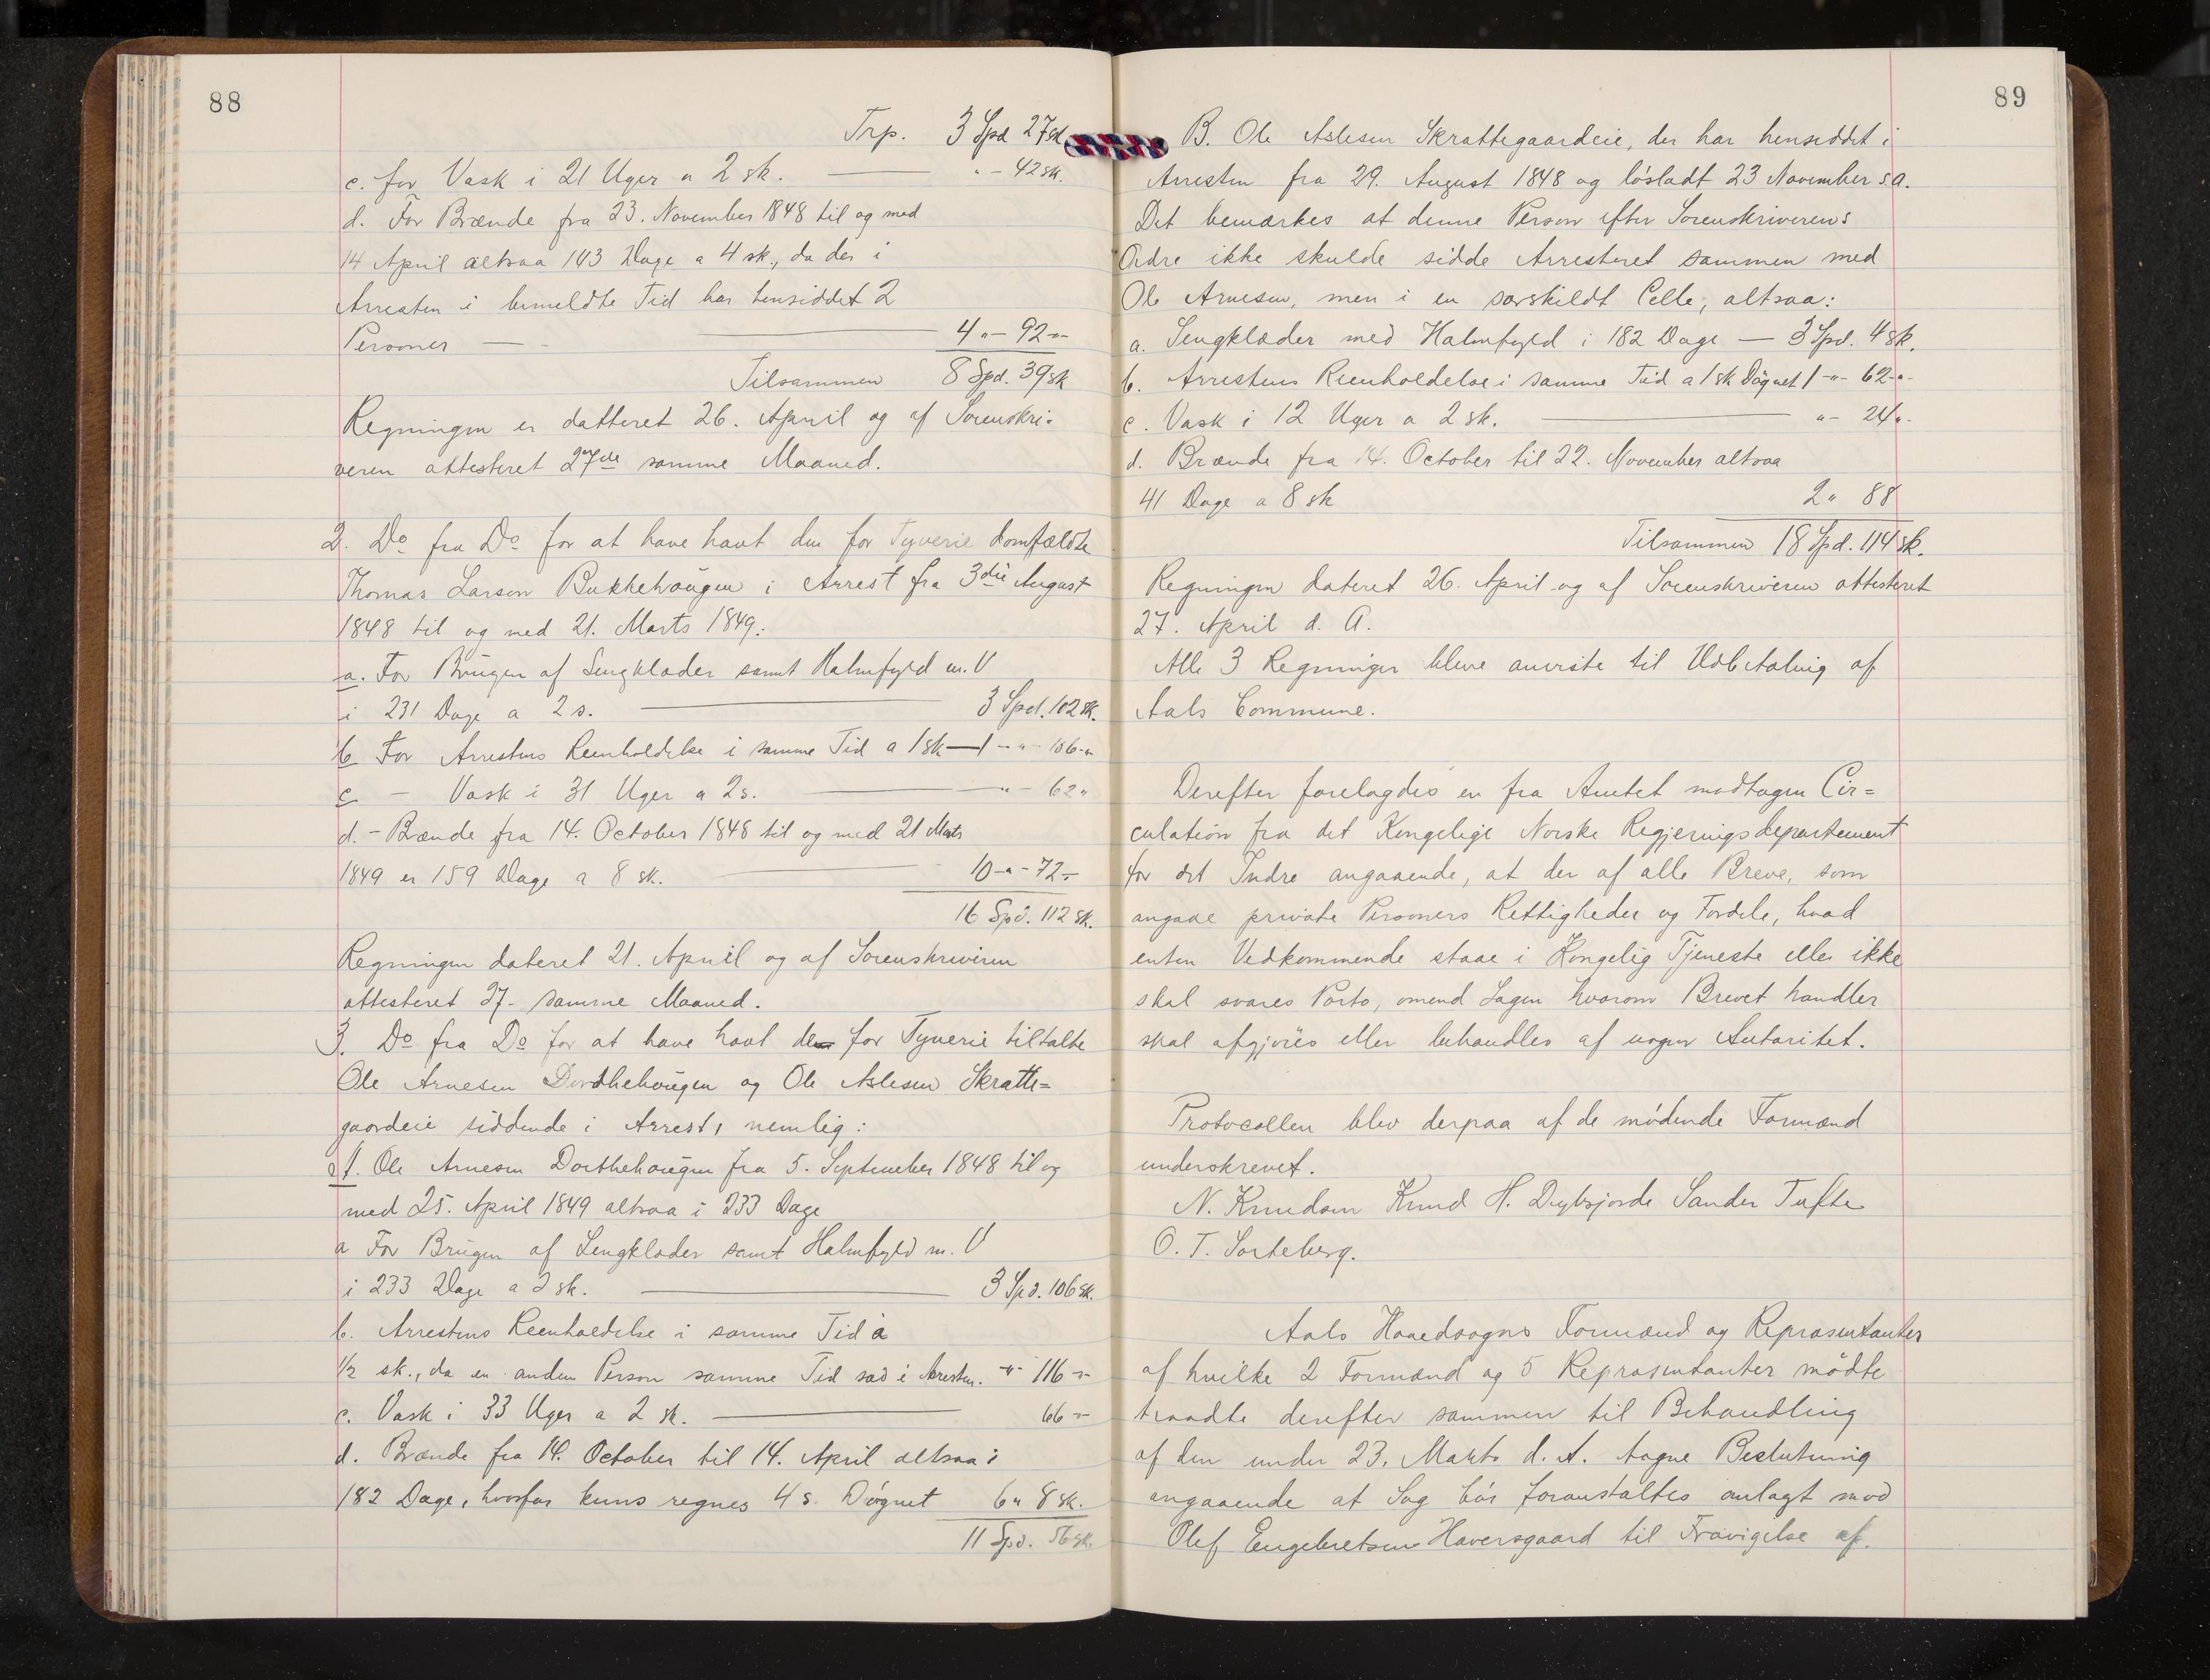 88
Trp. 3 Spd 27 sk.
c. for Vask i 21 Uger a 2 sk. — " - 42 sk.
d. For Brænde fra 23. November 1848 til og med
14 April altsaa 143 Dage a 4 sk., da der i
Arresten i bemeldte Tid har hensiddet 2
Personer — 4 " - 92 - " -
Tilsammen 8 Spd. 39 sk
Regningen er datteret 26. April og af Sorenskri-
veren attesteret 27de samme Maaned.
2. Do fra Do for at have havt den for Tyverie domfældte
Thomas Larsen Bukkehaugen i Arrest fra 3die August
1848 til og med 21. Marts 1849:
a. For Brugen af Sengklæder samt Halmfyld m. V
i 231 Dage a 2 s. — 3 Spd. 102 sk.
b For Arrestens Reenholdelse i samme Tid a 1 sk — 1 - " - 106 - " -
c — Vask i 31 Uger a 2 s. — " - 62 "
d. - Brænde fra 14. October 1848 til og med 21 Marts
1849 er 159 Dage a 8 sk. — 10 - " - 72 -
16 Spd. 112 sk.
Regningen dateret 21. April og af Sorenskriveren
attesteret 27. samme Maaned.
3. Do fra Do for at have havt de for Tyverie tiltalte
Ole Arnesen Dordhehougen og Ole Aslesen Skratte=
gaardeie siddende i Arrest, nemlig:
A. Ole Arnesen Dorthehougen fra 5. September 1848 til og
med 25. April 1849 altsaa i 233 Dage
a For Brugen af Sengklæder samt Halmfyld m. V
i 233 Dage a 2 sk. — 3 Spd. 106 sk.
b. Arrestens Reenholdelse i samme Tid a
1/2 sk., da en anden Person samme Tid sad i Arresten. - " - 116 - " -
c. Vask i 33 Uger a 2 sk. — 66 - " -
d. Brænde fra 14. October til 14. April altsaa i
182 Dage, hvorfor kuns regnes 4 s. Døgnet 6 " 8 sk.
11 Spd. 56 sk.
89
B. Ole Aslesen Skrattegaardeie, der har hensiddet i
Arresten fra 29. August 1848 og løsladt 23 November s.A.
Det bemærkes at denne Person efter Sorenskriverens
Ordre ikke skulde sidde Arresteret sammen med
Ole Arnesen, men i en særskildt Celle, altsaa:
a. Sengklæder med Halmfyld i 182 Dage — 3 Spd. 4 sk.
b. Arrestens Reenholdelse i samme Tid a 1 sk Døgnet 1 - " - 62 - " -
c. Vask i 12 Uger a 2 sk. — " - 24 " -
d. Brænde fra 14. October til 22. November altsaa
41 Dage a 8 sk 2 " 88
Tilsammen 18 Spd. 114 sk.
Regningen dateret 26. April og af Sorenskriveren attesteret
27. April d. A.
Alle 3 Regninger bleve anviste til Udbetaling af
Aals Commune.
Derefter forelagdes en fra Amtet modtagen Cir=
culation fra det Kongelige Norske Regjeringsdepartement
for det Indre angaaende, at der af alle Breve, som
angaae private Personers Rettigheder og Fordele, hvad
enten Vedkommende staae i Kongelig Tjeneste eller ikke
skal svares Porto, omend Sagen hvorom Brevet handler
skal afgjøres eller behandles af nogen Autoritet.
Protocollen blev derpaa af de mødende Formænd
underskrevet.
N. Knudsen Knud H. Dybsjorde Sander Tufte
O. T. Sorteberg.
Aals Hovedsogns Formænd og Repræsentanter
af hvilke 2 Formænd og 5 Repræsentanter mødte
traadte derefter sammen til Behandling
af den under 23. Marts d. A. tagne Beslutning
angaaende at Sag bør foranstaltes anlagt mod
Olef Engebretsen Haversgaard til Fravigelse af